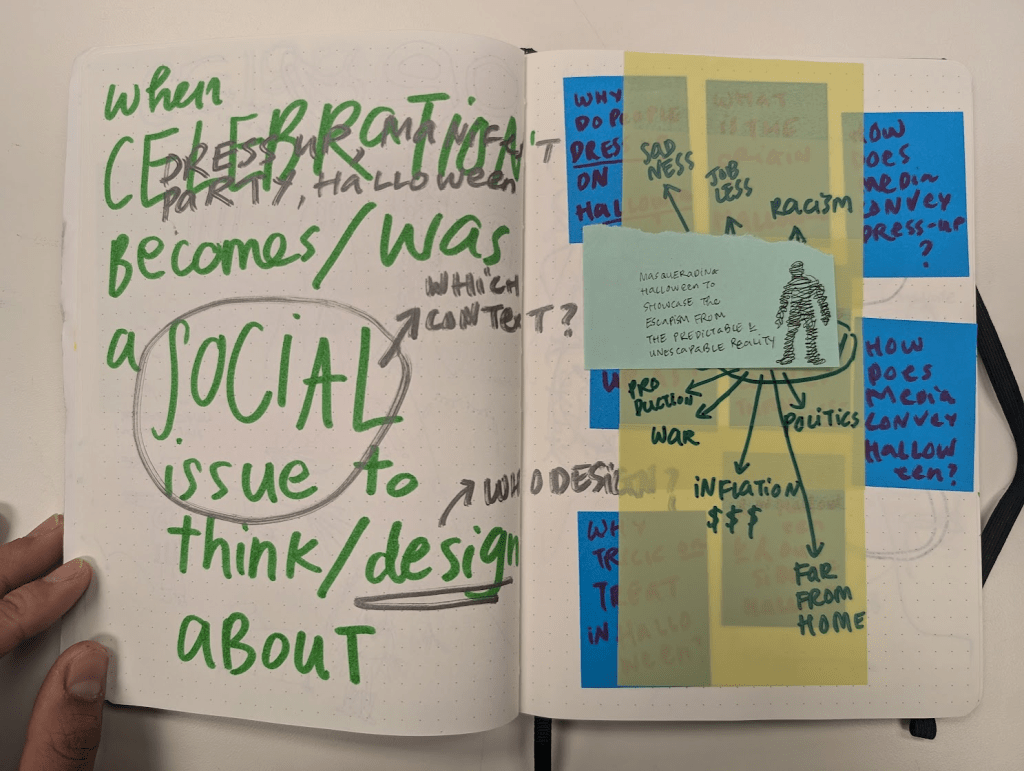 when
CELEBRATION
DRESS UP, MANIFEST
PARTY, HALLOWEEN
BECOMES/WAS
WHICH
CONTEXT?
a SOCIAL
issue to
WHO DESIGN?
think/design
ABOUT
WHY
DO PEOPLE
DRESS
ON
HALLO
WHAT
IS THE
ORIGIN
HOW
DOES
MEDIA
CONVEY
DRESS-UP
?
SAD
NESS
JOB
LESS
RACISM
MASQUERADING
HALLOWEEN TO
SHOWCASE THE
ESCAPISM FROM
THE PREDICTABLE &
UNESCAPABLE REALITY
PRO
DUCTION
WAR
POLITICS
INFLATION
$$$
FAR
FROM
HOME
HOW
DOES
MEDIA
CONVEY
HALLOW
EEN?
WHY
TRICK OR
TREAT
IN HALLO
WEEN?